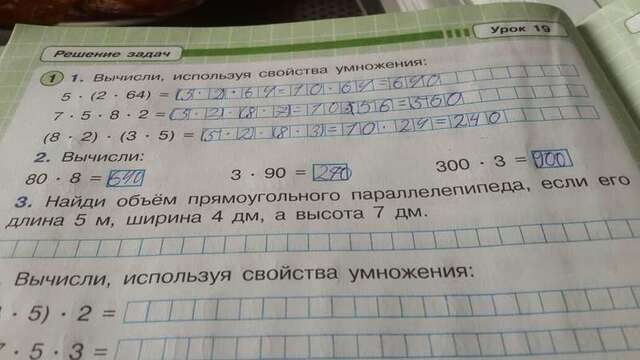 Решение задач
Урок 19
1 1. Вычисли, используя свойства умножения:
5 · (2 · 64) = (5 · 2) · 64 = 10 · 64 = 640
7 · 5 · 8 · 2 = (5 · 2) · (8 · 7) = 10 · 56 = 560
(8 · 2) · (3 · 5) = (5 · 2) · (8 · 3) = 10 · 24 = 240
2. Вычисли:
80 · 8 = 640 3 · 90 = 270 300 · 3 = 900
3. Найди объём прямоугольного параллелепипеда, если его
длина 5 м, ширина 4 дм, а высота 7 дм.
. Вычисли, используя свойства умножения:
· 5) · 2 =
· 5 · 3 =